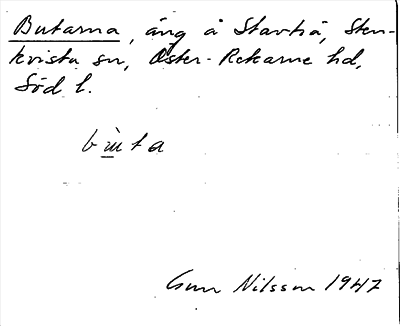 Butarna, äng å Stavtrå, Sten-
kvista sn, Öster-Rekarne hd,
Söd l.
bùta
Gun Nilsson 1947